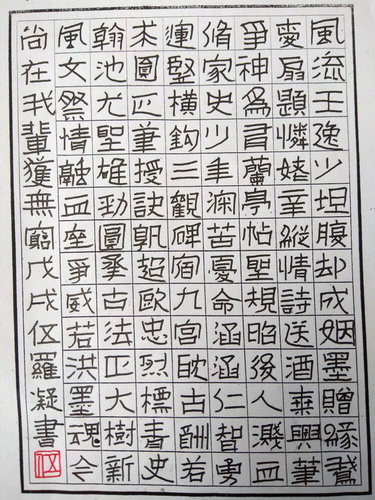 風流王逸少坦腹却成姻墨贈緣鵞
愛扇題憐姥辜縱情詩送酒乘興筆
爭神為君蘭亭帖聖規昭後人濺血
脩家史少年澗苦憂命涵涵仁智勇
運堅橫鈎三觀碑宿九宮耽古酬若
求圓匹筆授訣超歐忠烈標青史
翰池尤聖雄勁圖古法正大樹新
風女祭情融血座爭威若洪墨魂令
尚在我輩獲無窮戊戌伍羅凝書
伍